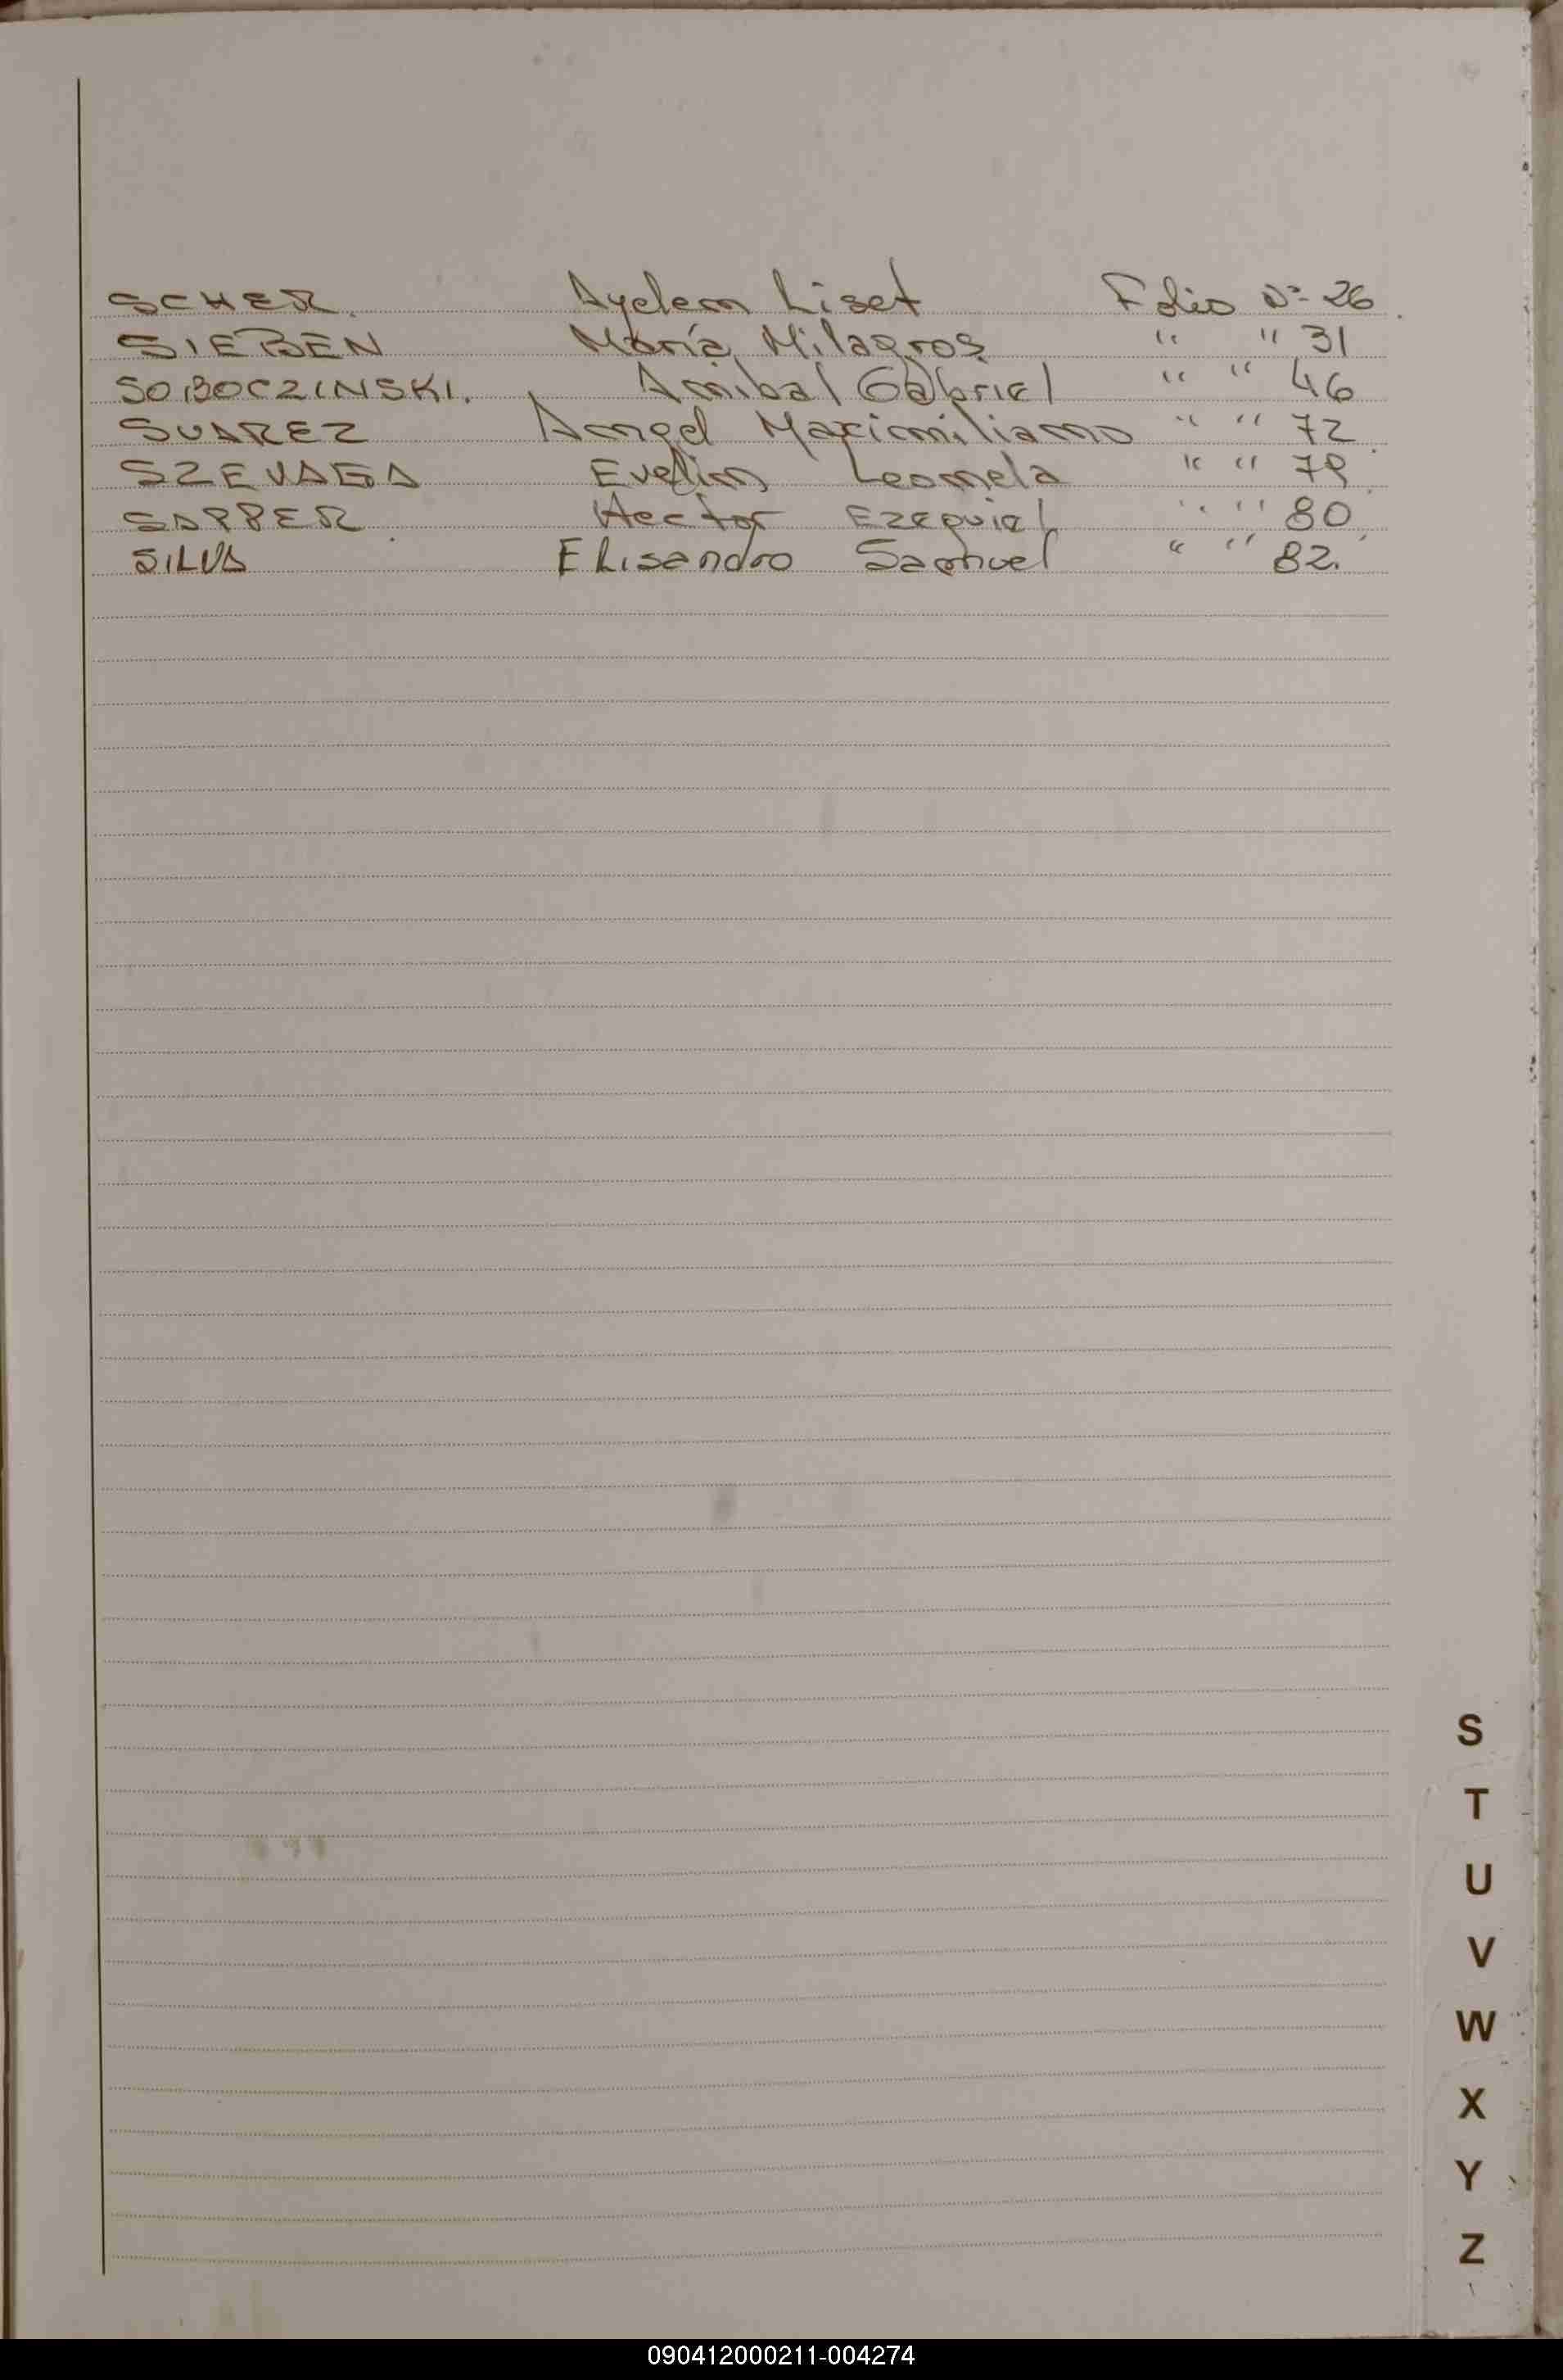 SCHER. Ayelem Liset Folio Nº 26.
SIEBEN María Milagros " " 31
SOBOCZINSKI. Anibal Gabriel " " 46
SUAREZ Angel Maximiliano " " 72
SZEVAGA Evelin Leonela " " 79
SAPPER Hector Ezequiel " " 80
SILVA Elisandro Samuel " " 82.
S
T
U
V
W
X
Y
Z
090412000211-004274